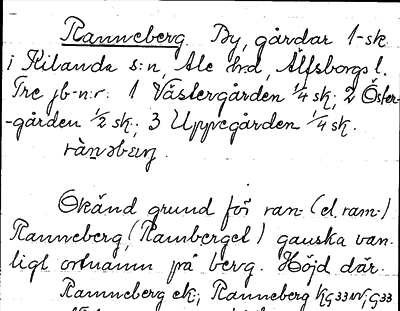 Ranneberg. By, gårdar 1 sk
i Kilanda s:n, Ale hrd, Älfsborgs l.
Tre jb-n:r: 1 Västergården 1/4 sk; 2 Öster-
-gården 1/2 sk; 3 Uppegården 1/4 sk.
Okänd grund för ran- (el. ram-)
Ranneberg, (Rambergel) ganska van
ligt ortnamn på berg. Höjd där.
Ranneberg ek; Ranneberg KG33NV, G33